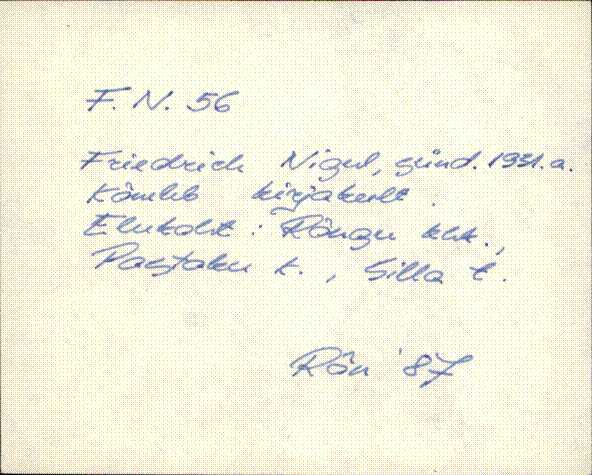 F. N. 56
Friedrich Nigul, sünd. 1931. a.
Kõneleb kirjakeelt.
Elukoht: Rõngu khk.,
Pastaku k., Silla t.
Rõn '87